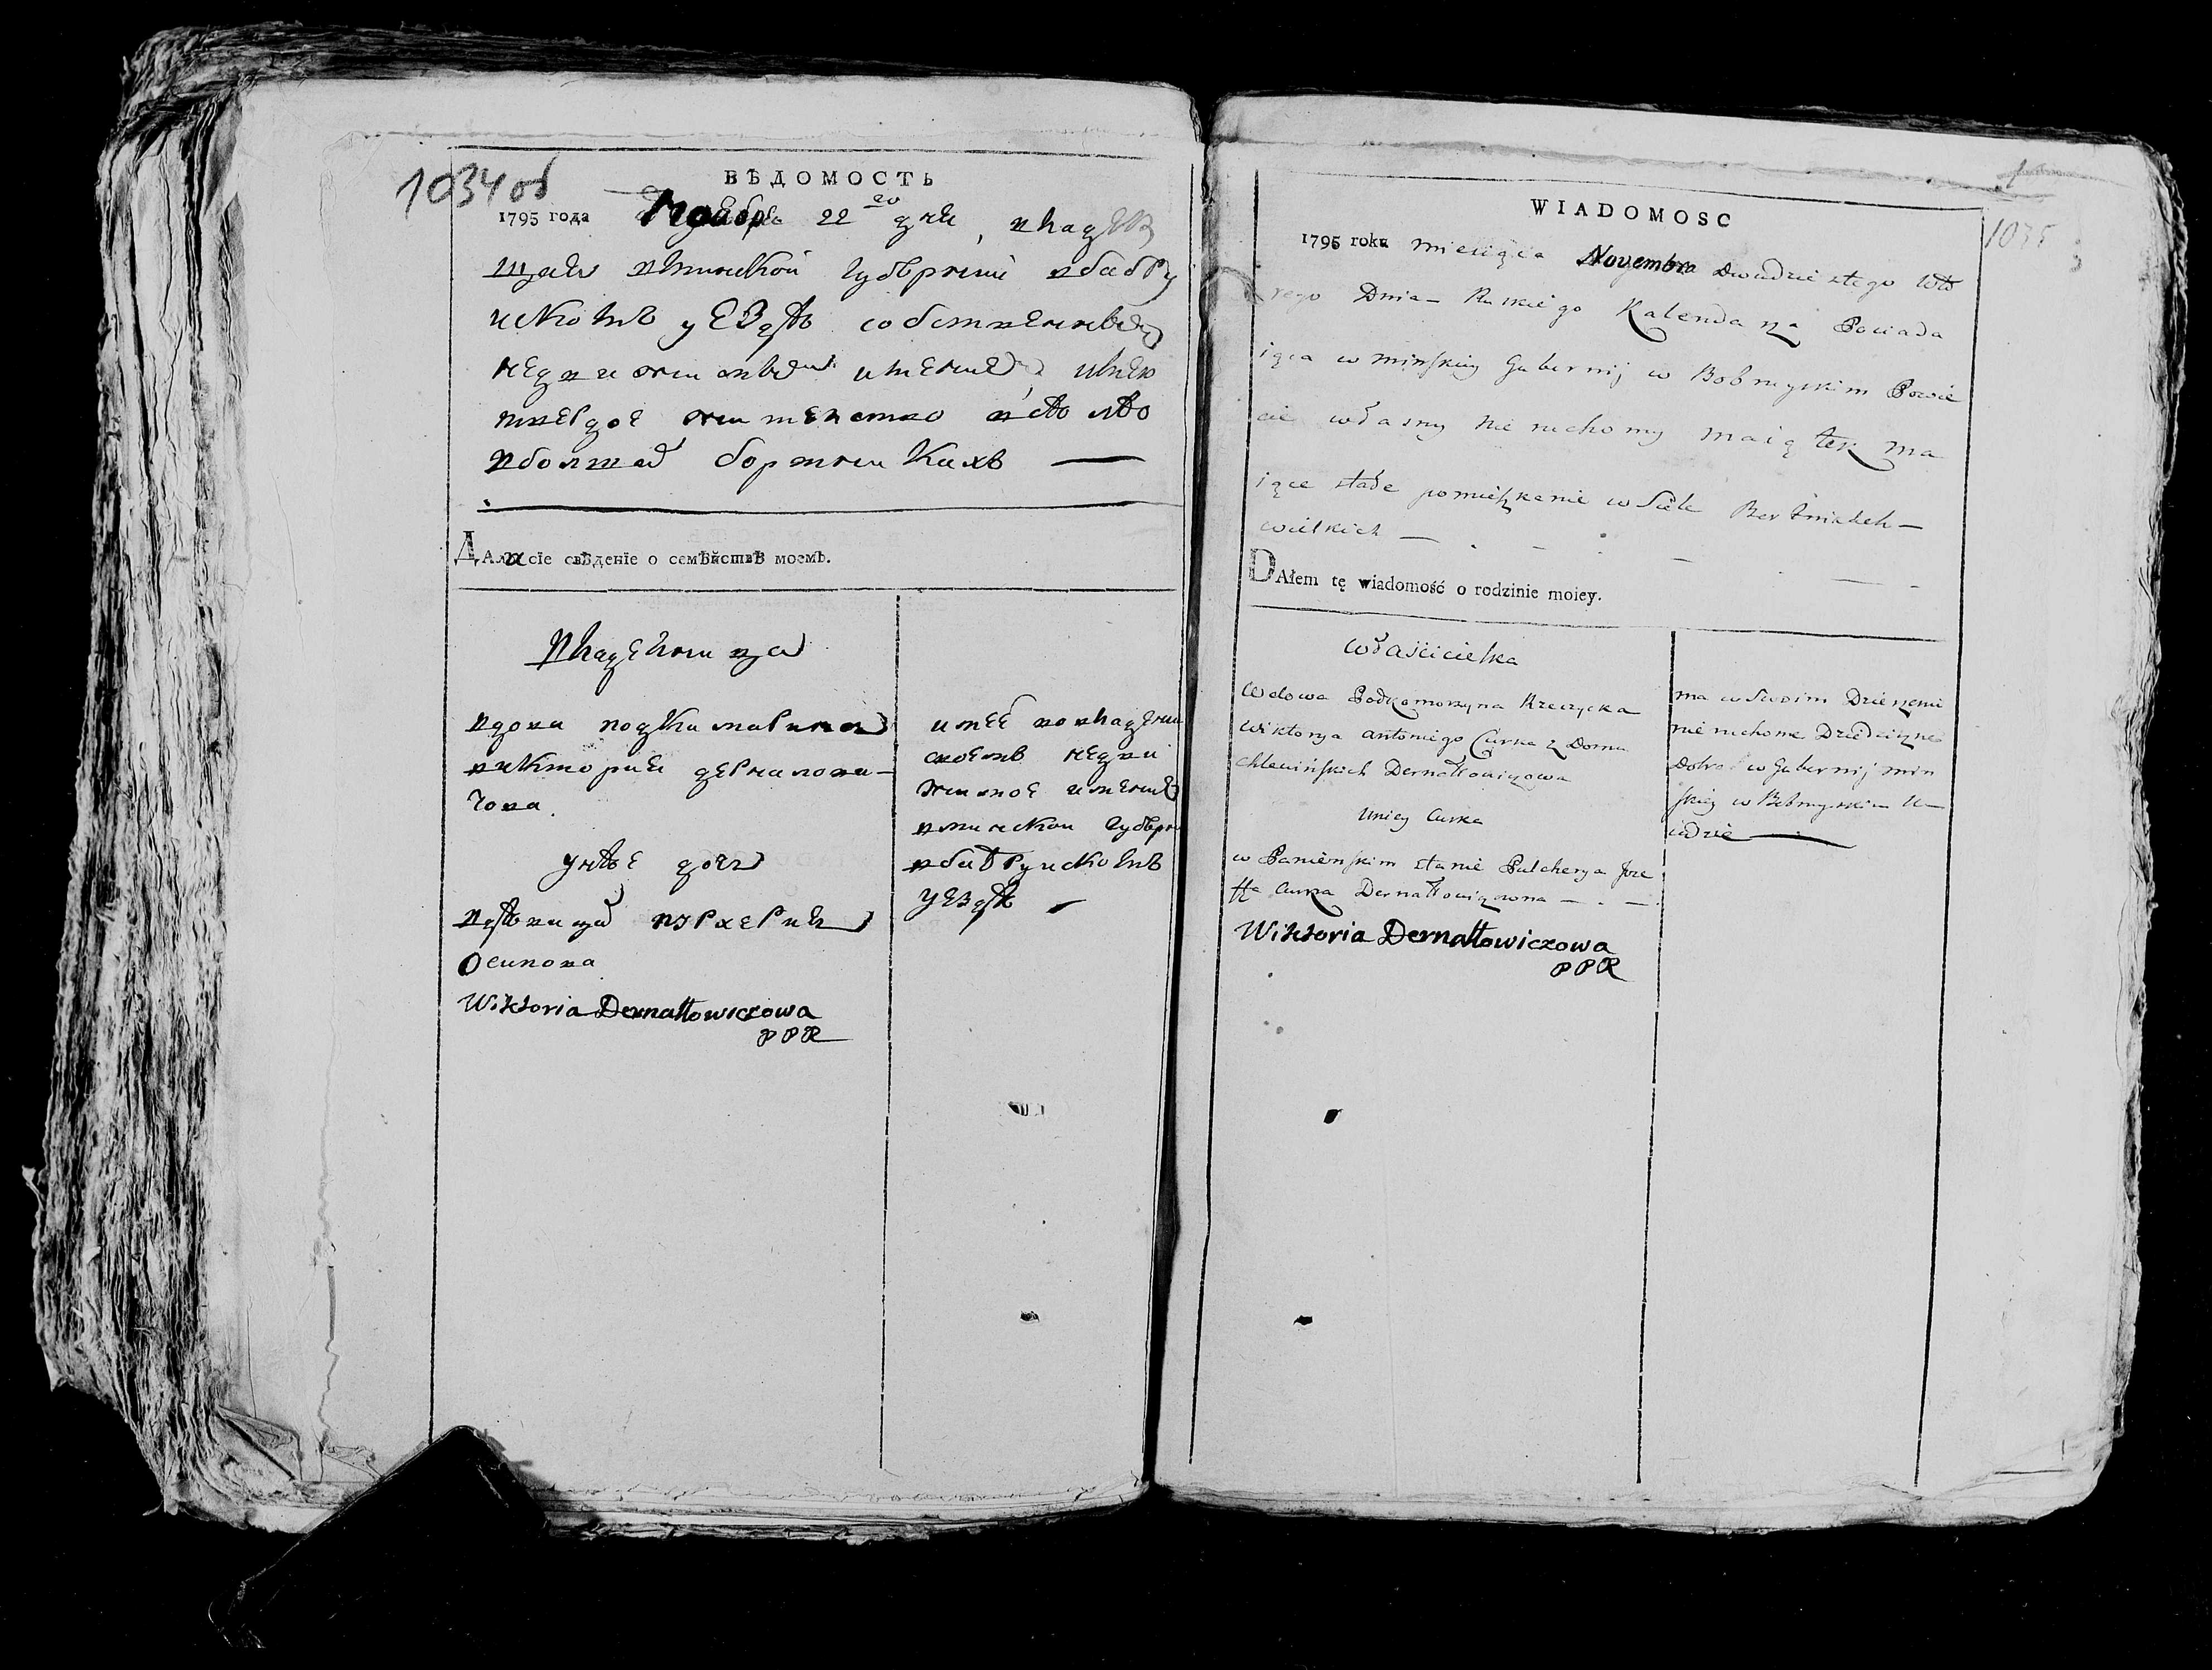 1034 об
ВѢДОМОСТЬ
1795 года Ноабра 22 го дня, владею
щая вминской губернии вбабру
искомъ уездѣ собственнымъ
недвижимымъ имениемъ, имею
твердое жителство вселѣ
вболшой бортникахъ —
ДАла сіе свѣденіе о семѣйствѣ моемъ.
владелница
вдова подкаморина
викториа дерналови-
чова
унее дочъ
девица пулхериа
Осипова
Wiktoria Dernałłowiczowa
PPR
имее вовладении
своемъ недви
жимое имение
вминской губерн
вбабруискомъ
уездѣ —
1035
WIADOMOSC
1795 roku miesiąca Novembra dwudziestego wto
rego Dnia Ruskiego Kalendarza Posiada
iąca w minskiey Gubernij w Bobruyskim Powie
cie własny nie ruchomy maiątek ma
iące stałe pomieszkanie w Siele Bortnikach
wielkich —
DAłem tę wiadomość o rodzinie moiey.
właścicielka
Wdowa Podkomorzyna Rzeczycka
Wiktorya Antoniego Curka z Domu
Chlewińskich Dernałłowiczowa
Uniey Curka
w Panieńskim stanie Pulcherya Joze
ffa Curka Dernałłowiczowna —
Wiktoria Dernałłowiczowa
PPR
ma w Swoim Dzierżeniu
nie ruchome Dziedziczne
Dobra w Gubernij min
skiey w Bobruyskim U
iezdzie —